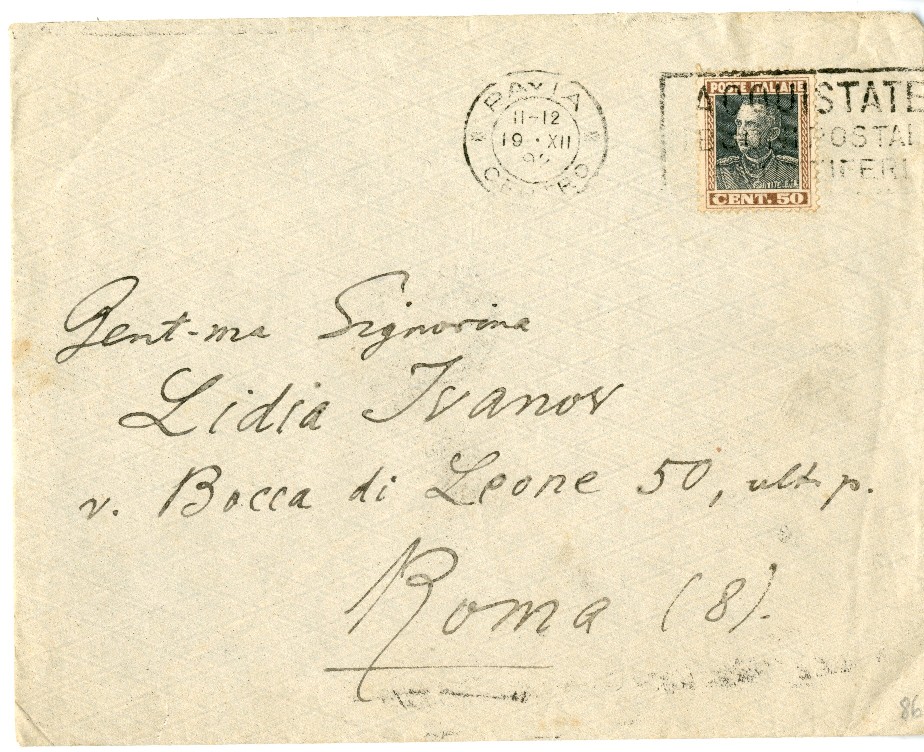 PAVIA
11-12
19 · XII
CENTRO
ACQUISTATE
POSTAL
POSTE ITALIANE
CENT. 50
Gent-ma Signorina
Lidia Ivanov
v. Bocca di Leone 50, ult. p.
Roma (8).
86